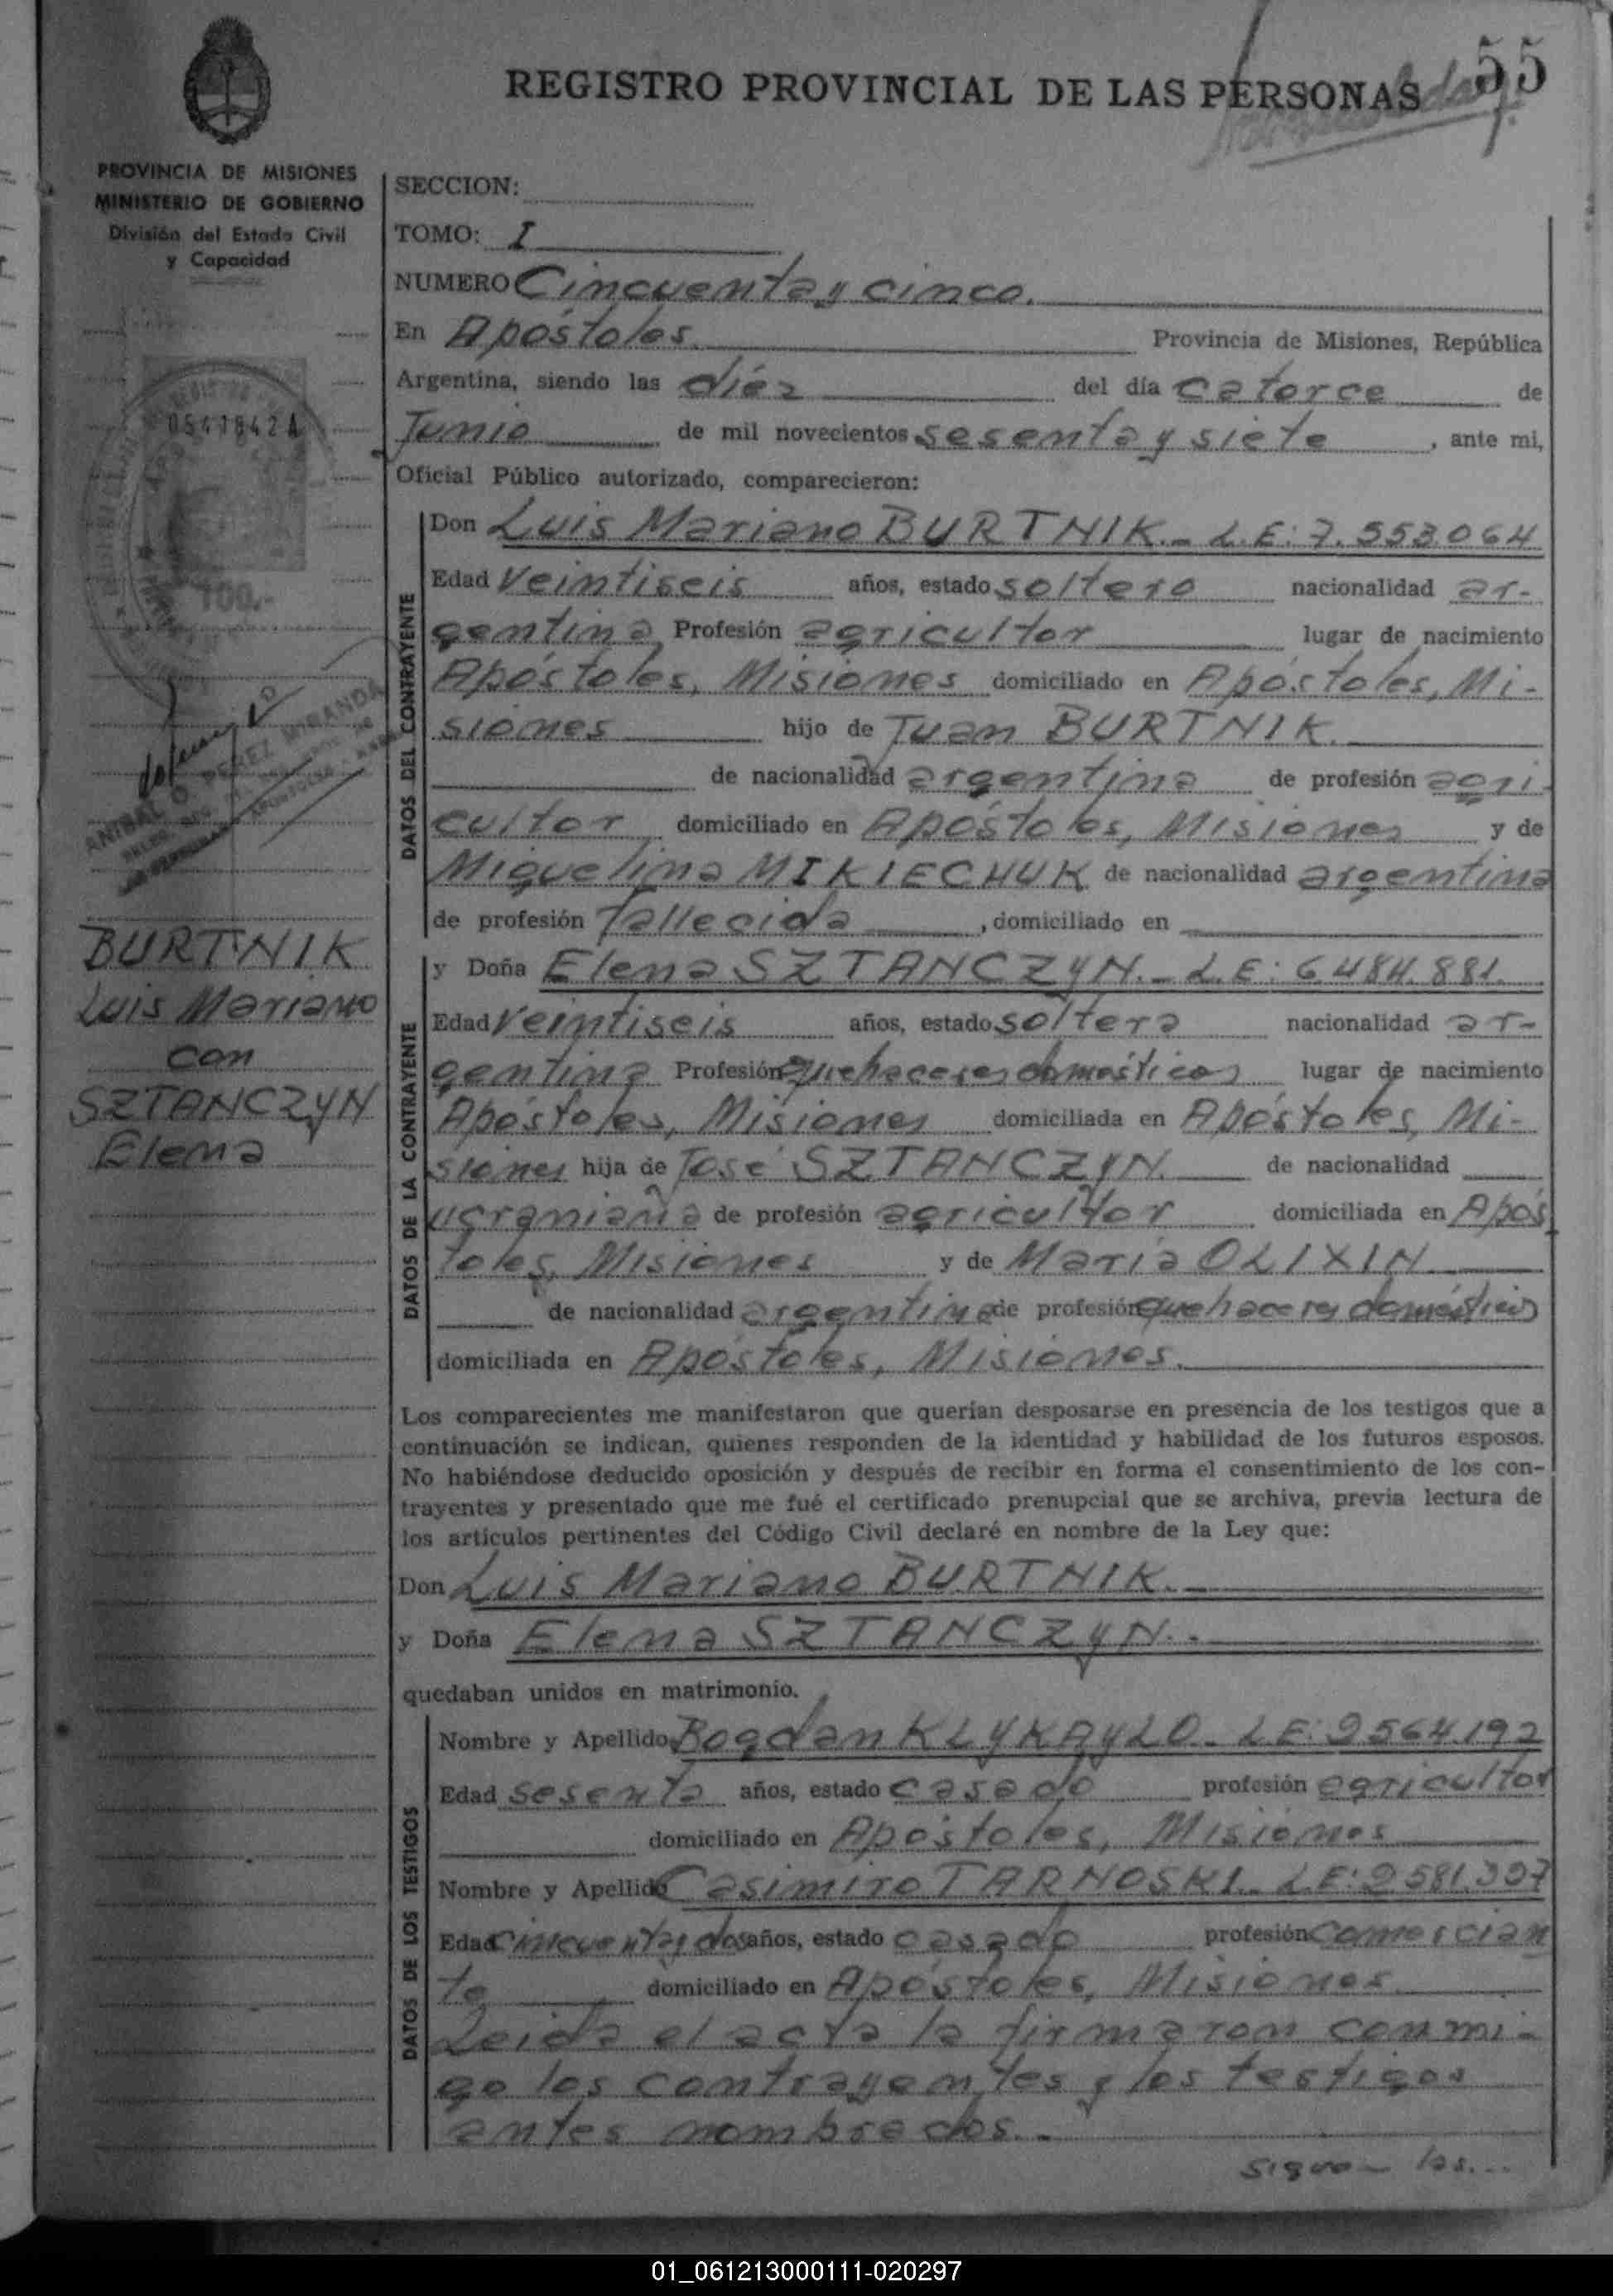 55
REGISTRO PROVINCIAL DE LAS PERSONAS
PROVINCIA DE MISIONES
MINISTERIO DE GOBIERNO
División del Estado Civil
y Capacidad
05418424
100.-
ANIBAL O. PEREZ MIRANDA
BURTNIK
Luis Mariano
con
SZTANCZYN
Elena
SECCION:
TOMO: I
NUMERO Cincuenta y cinco.
En Apóstoles. Provincia de Misiones, República
Argentina, siendo las diéz del día catorce de
Junio de mil novecientos sesenta y siete, ante mi,
Oficial Público autorizado, comparecieron:
DATOS DEL CONTRAYENTE
Don Luis Mariano BURTNIK.- L.E: 7.553.064
Edad veintiseis años, estado soltero nacionalidad ar-
gentina Profesión agricultor lugar de nacimiento
Apóstoles, Misiones domiciliado en Apóstoles, Mi-
siones hijo de Juan BURTNIK.
de nacionalidad argentina de profesión agri
cultor domiciliado en Apóstoles, Misiones y de
Miguelina MIKIECHUK de nacionalidad argentina
de profesión fallecida, domiciliado en
DATOS DE LA CONTRAYENTE
y Doña Elena SZTANCZYN.- L.E: 6.484.881.
Edad veintiseis años, estado soltera nacionalidad ar-
gentina Profesión quehaceres domésticos lugar de nacimiento
Apóstoles, Misiones domiciliada en Apóstoles, Mi-
siones hija de José SZTANCZYN. de nacionalidad
ucraniana de profesión agricultor domiciliada en Após
toles, Misiones y de María OLIXIN
de nacionalidad argentina de profesión quehaceres domésticos
domiciliada en Apóstoles, Misiones.
Los comparecientes me manifestaron que querían desposarse en presencia de los testigos que a
continuación se indican, quienes responden de la identidad y habilidad de los futuros esposos.
No habiéndose deducido oposición y después de recibir en forma el consentimiento de los con-
trayentes y presentado que me fué el certificado prenupcial que se archiva, previa lectura de
los artículos pertinentes del Código Civil declaré en nombre de la Ley que:
Don Luis Mariano BURTNIK.
y Doña Elena SZTANCZYN.-
quedaban unidos en matrimonio.
DATOS DE LOS TESTIGOS
Nombre y Apellido Bogdan KLYKAYLO.- L.E: 9564.192
Edad sesenta años, estado casado profesión agricultor
domiciliado en Apóstoles, Misiones
Nombre y Apellido Casimiro TARNOSKI.- L.E:
Edad cincuenta y dos años, estado casado profesión comercian
te domiciliado en Apóstoles, Misiones
Leida el acta la firmaron conmi-
go los contrayentes y los testigos
antes nombrados.-
Siguen las...
01_061213000111-020297